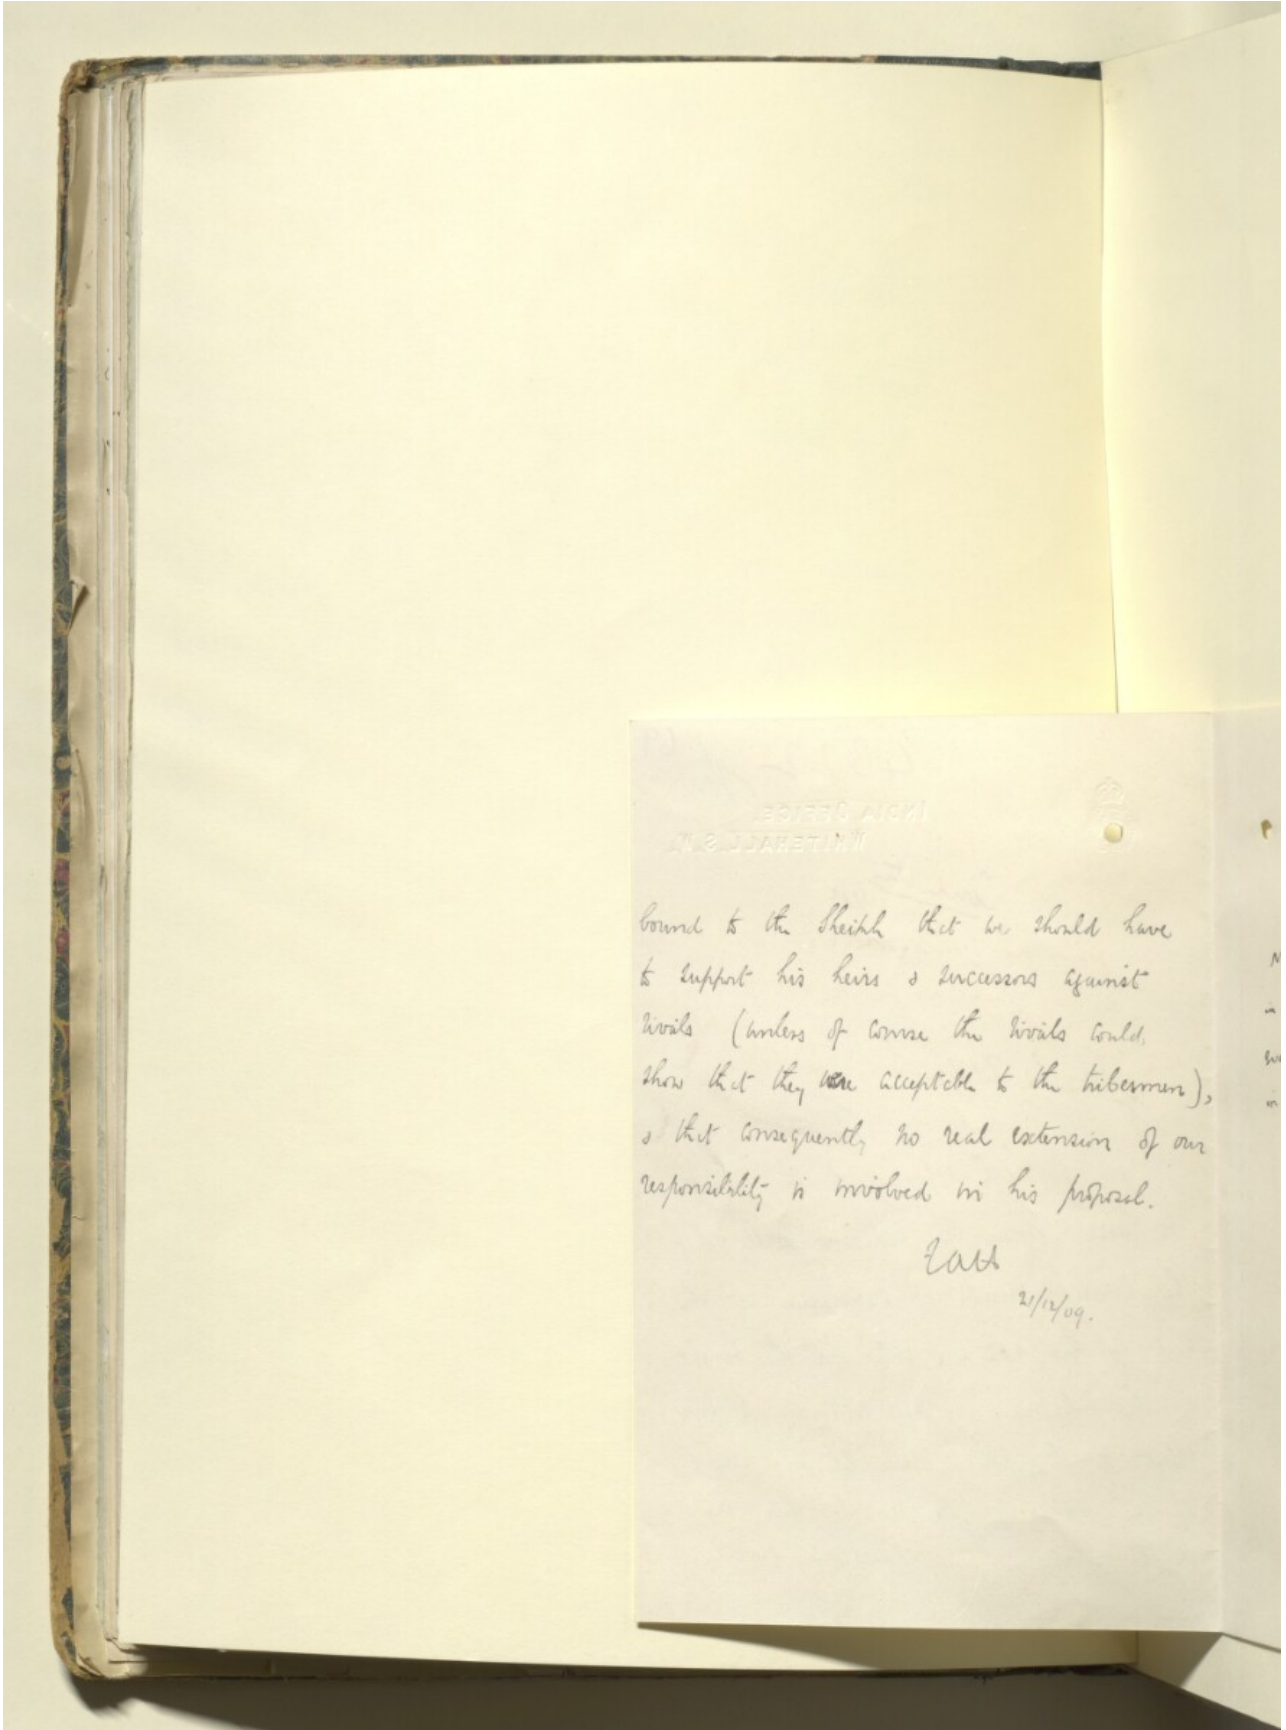 INDIA OFFICE
WHITEHALL. S.W.
bound to the Sheikh that we should have
to support his heirs & successors against
rivals (unless of course the rivals could
show that they were acceptable to the tribesmen),
& that consequently no real extension of our
responsibility is involved in his proposal.
21/12/09.